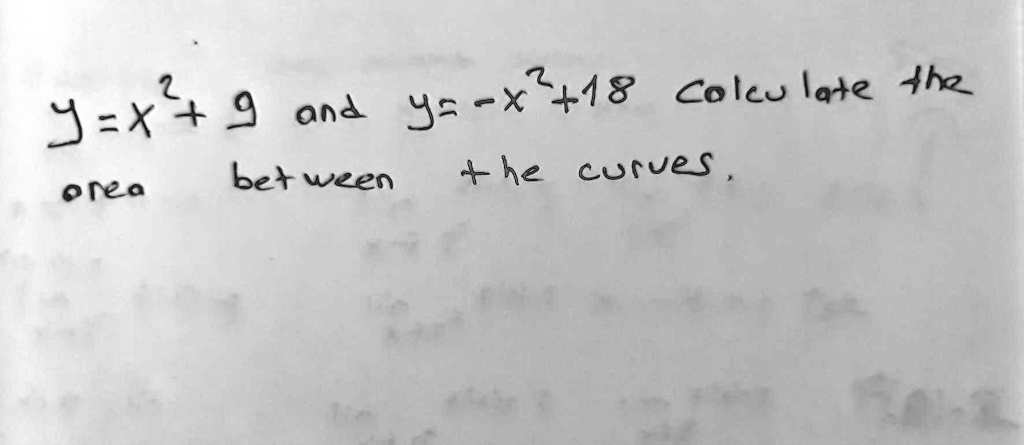 y=x²+9 and y=-x²+18 calculate the
area between the curves.